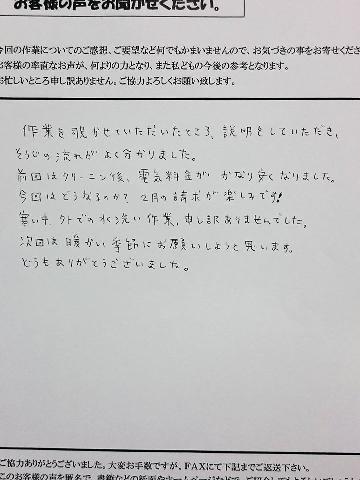 お客様の声をお聞かせください。
今回の作業についてのご感想、ご要望など何でもかまいませんので、お気づきの事をお寄せくださ
お客様の率直なお声が、何よりの力となり、また私どもの今後の参考となります。
お忙しいところ申し訳ありません。ご協力よろしくお願い致します。
作業を覗かせていただいたところ、説明をしていただき、
そうじの流れがよく分かりました。
前回はクリーニング後、電気料金が かなり安くなりました。
今回はどうなるのか? 2月の請求が楽しみです!
寒い中、外での水洗い作業、申し訳ありませんでした。
次回は暖かい季節にお願いしようと思います。
どうもありがとうございました。
ご協力ありがとうございました。大変お手数ですが、FAXにて下記までご返送下さい。
このお客様の声を匿名で、書籍などの紙面やホームページなどで、ご紹介